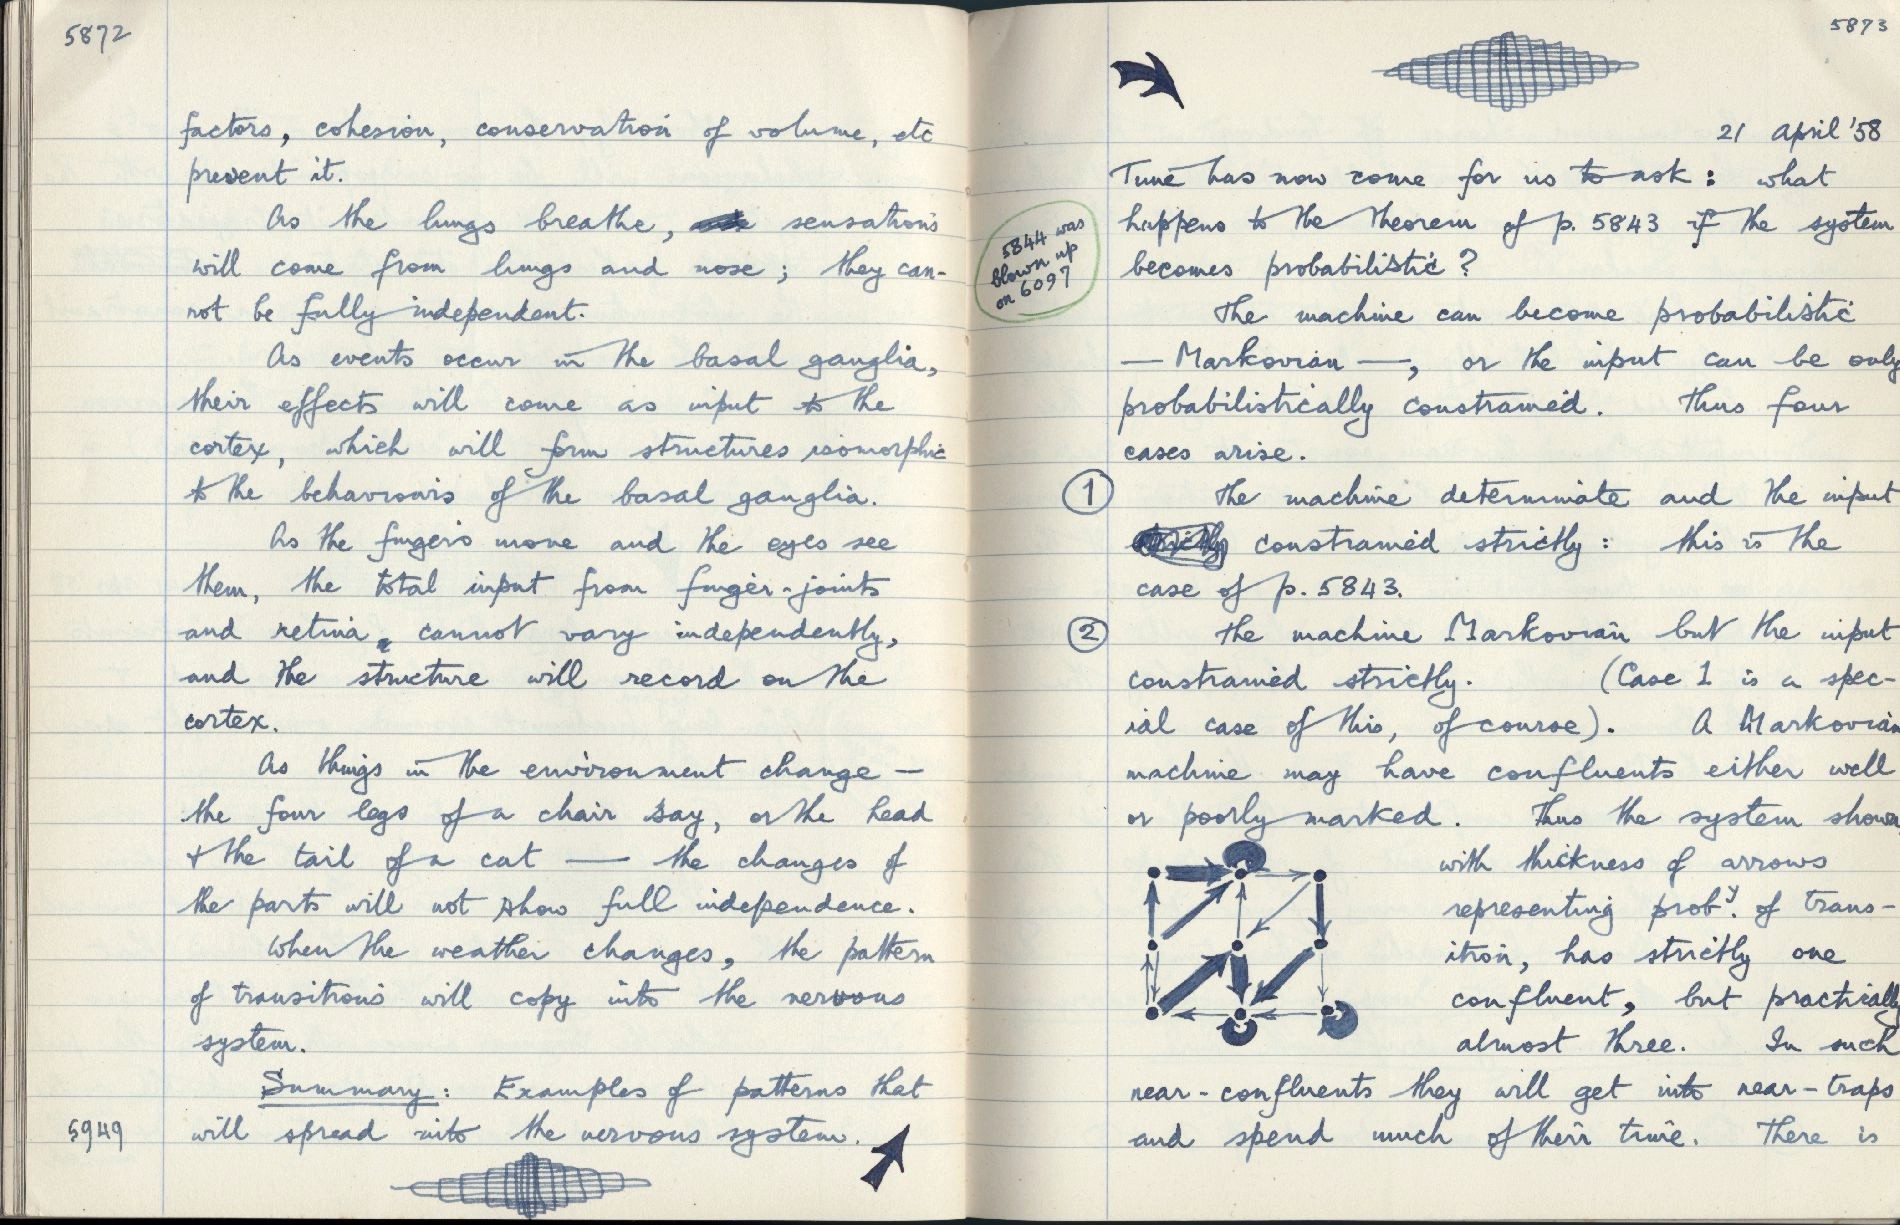 5872
factors, cohesion, conservation of volume, etc
prevent it.
As the lungs breathe, sensations
will come from lungs and nose; they can-
not be fully independent.
As events occur in the basal ganglia,
their effects will come as input to the
cortex, which will form structures isomorphic
to the behaviours of the basal ganglia.
As the fingers move and the eyes see
them, the total input from finger-joints
and retina, cannot vary independently,
and the structure will record on the
cortex.
As things in the environment change —
the four legs of a chair say, or the head
& the tail of a cat — the changes of
the parts will not show full independence.
When the weather changes, the pattern
of transitions will copy into the nervous
system.
Summary: Examples of patterns that
will spread into the nervous system.
5949
5873
21 April '58
Time has now come for us to ask: what
happens to the theorem of p. 5843 if the system
becomes probabilistic?
5844 was
blown up
on 6097
The machine can become probabilistic
— Markovian —, or the input can be only
probabilistically constrained. Thus four
cases arise.
① The machine determinate and the input
constrained strictly: this is the
case of p. 5843.
② The machine Markovian but the input
constrained strictly. (Case 1 is a spec-
ial case of this, of course). A Markovian
machine may have confluents either well
or poorly marked. Thus the system shown
with thickness of arrows
representing proby. of trans-
ition, has strictly one
confluent, but practically
almost three. In such
near-confluents they will get into near-traps
and spend much of their time. There is